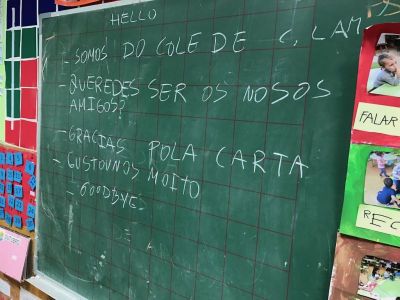 HELLO
- SOMOS DO COLE DE C. LAM
- QUEREDES SER OS NOSOS
AMIGOS?
- GRACIAS POLA CARTA
- GUSTOUNOS MOITO
- GOODBYE
FALAR
REC